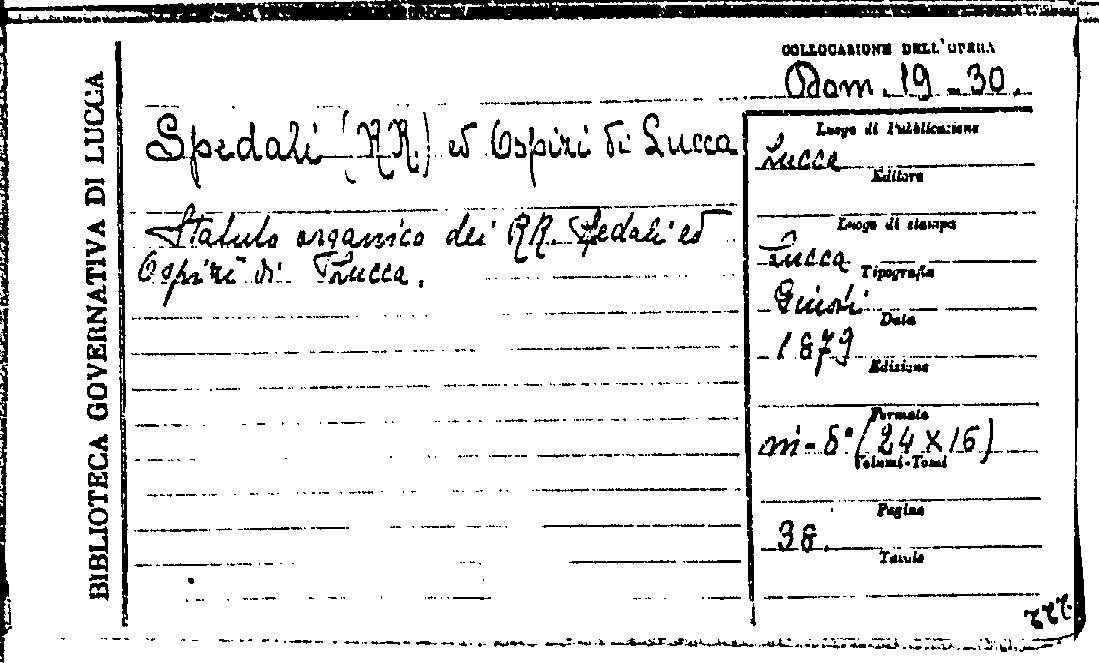 BIBLIOTECA GOVERNATIVA DI LUCCA
COLLOCAZIONE DELL'OPERA
Dom. 19 - 30.
Spedali (RR.) ed Ospizi di Lucca
Statuto organico dei RR. Spedali ed
Ospizi di Lucca.
Luogo di Pubblicazione
Lucca
Editore
Luogo di stampa
Lucca
Tipografia
Giusti
Data
1879
Edizione
Formato
in-8° (24 X 16)
Volumi-Tomi
Pagine
38.
Tavole